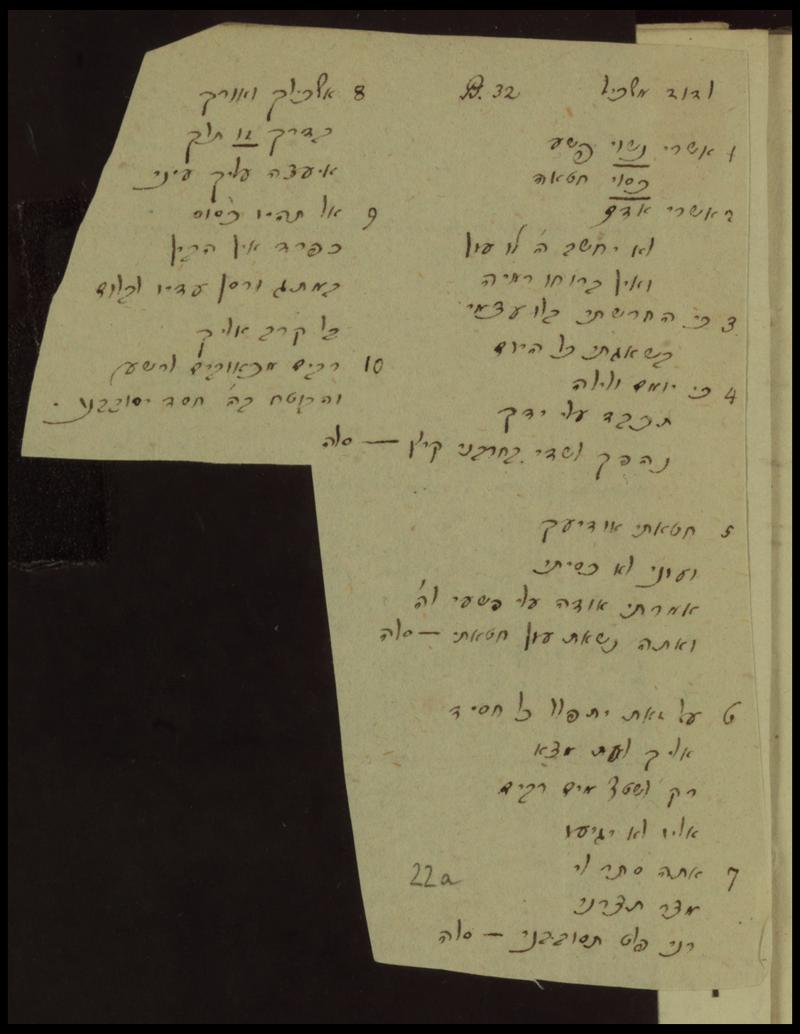 לדוד משכיל Ps. 32
1 אשרי נשוי פשע
כסוי חטאה
2 אשרי אדם
לא יחשב ה' לו עון
ואין ברוחו רמיה
3 כי החרשתי בלו עצמי
בשאגתי כל היום
4 כי יומם ולילה
תכבד עלי ידך
נהפך לשדי בחרבני קיץ — סלה
5 חטאתי אודיעך
ועוני לא כסיתי
אמרתי אודה עלי פשעי לה'
ואתה נשאת עון חטאתי — סלה
6 על זאת יתפלל כל חסיד
אליך לעת מצא
רק לשטף מים רבים
אליו לא יגיעו
7 אתה סתר לי
מצר תצרני
רני פלט תסובבני — סלה
22a
8 אשכילך ואורך
בדרך זו תלך
איעצה עליך עיני
9 אל תהיו כסוס
כפרד אין הבין
במתג ורסן עדיו לבלום
בל קרב אליך
10 רבים מכאובים לרשע
והבוטח בה' חסד יסובבנו.